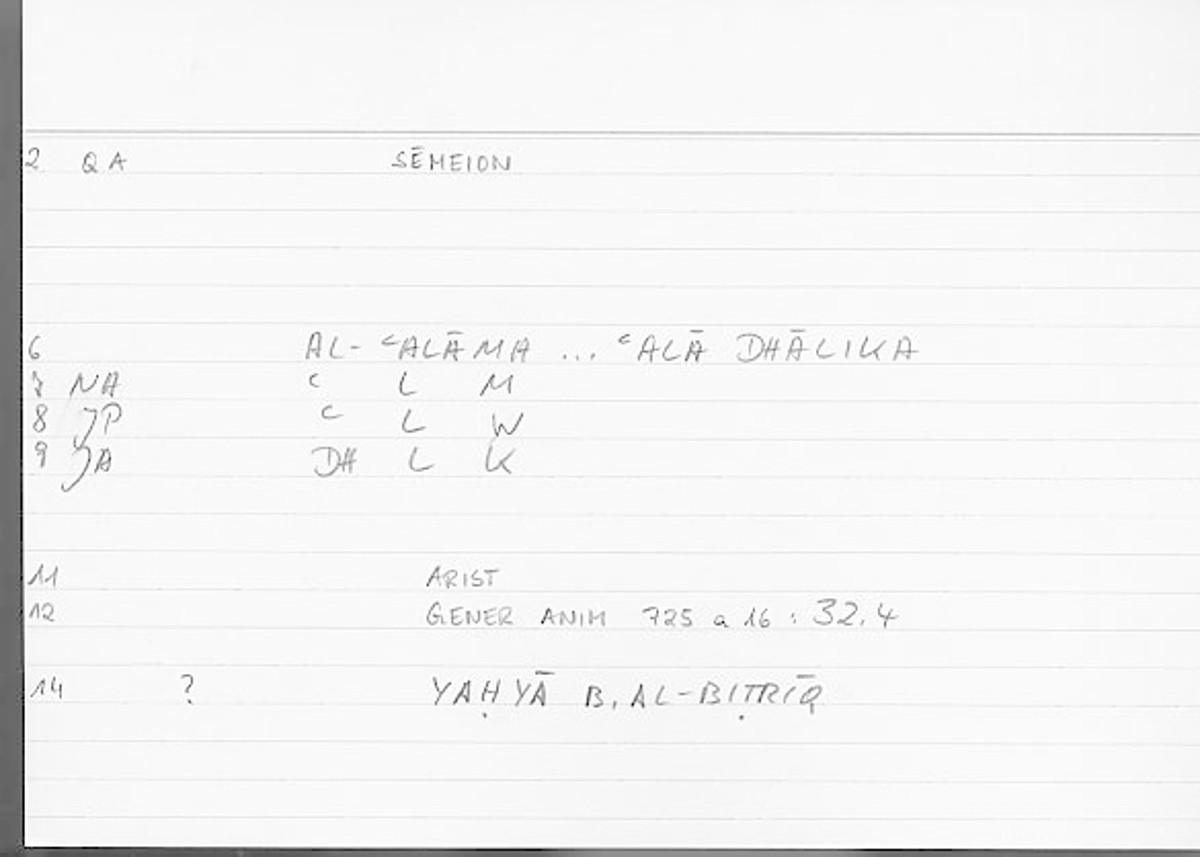 2 QA SĒMEION
6 AL-ʿALĀMA ... ʿALĀ DHĀLIKA
7 NA ʿ L M
8 JP ʿ L W
9 JA DH L K
11 ARIST
12 GENER ANIM 725 a 16 : 32.4
14 ? YAḤYĀ B. AL-BIṬRĪQ